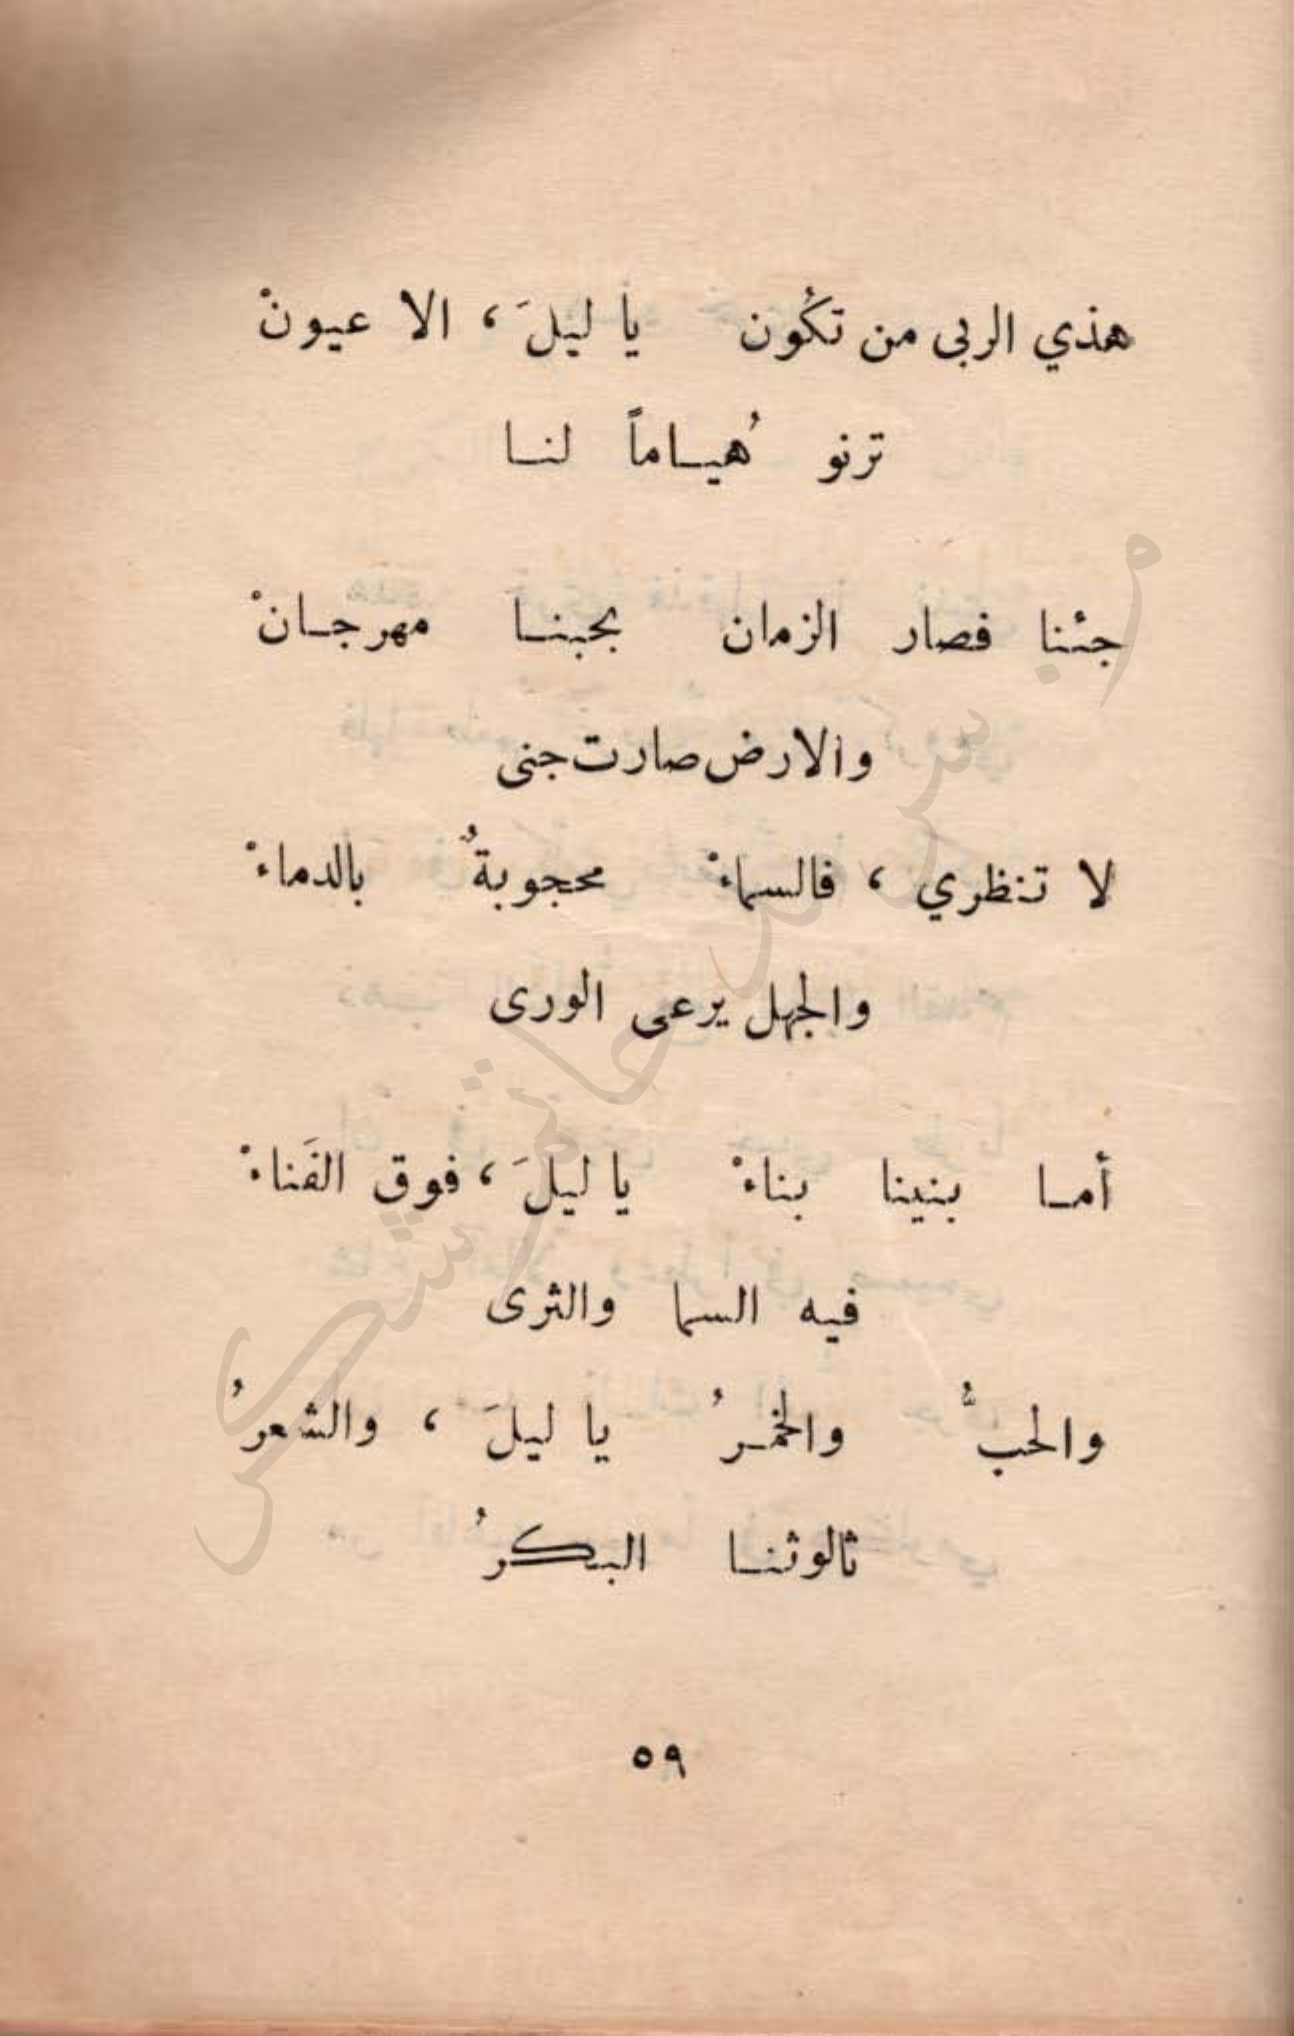 هذي الربى من تكُون يا ليلَ ، الا عيونْ
ترنو هُياماً لنا
جئنا فصار الزمان بحبنا مهرجانْ
والارض صارت جنى
لا تنظري ، فالسماءْ محجوبةٌ بالدماءْ
والجهل يرعى الورى
أما بنينا بناءْ يا ليلَ ، فوق الفَناءْ
فيه السما والثرى
والحبُّ والخمرُ يا ليلَ ، والشعرُ
ثالوثنا البكرُ
٥٩